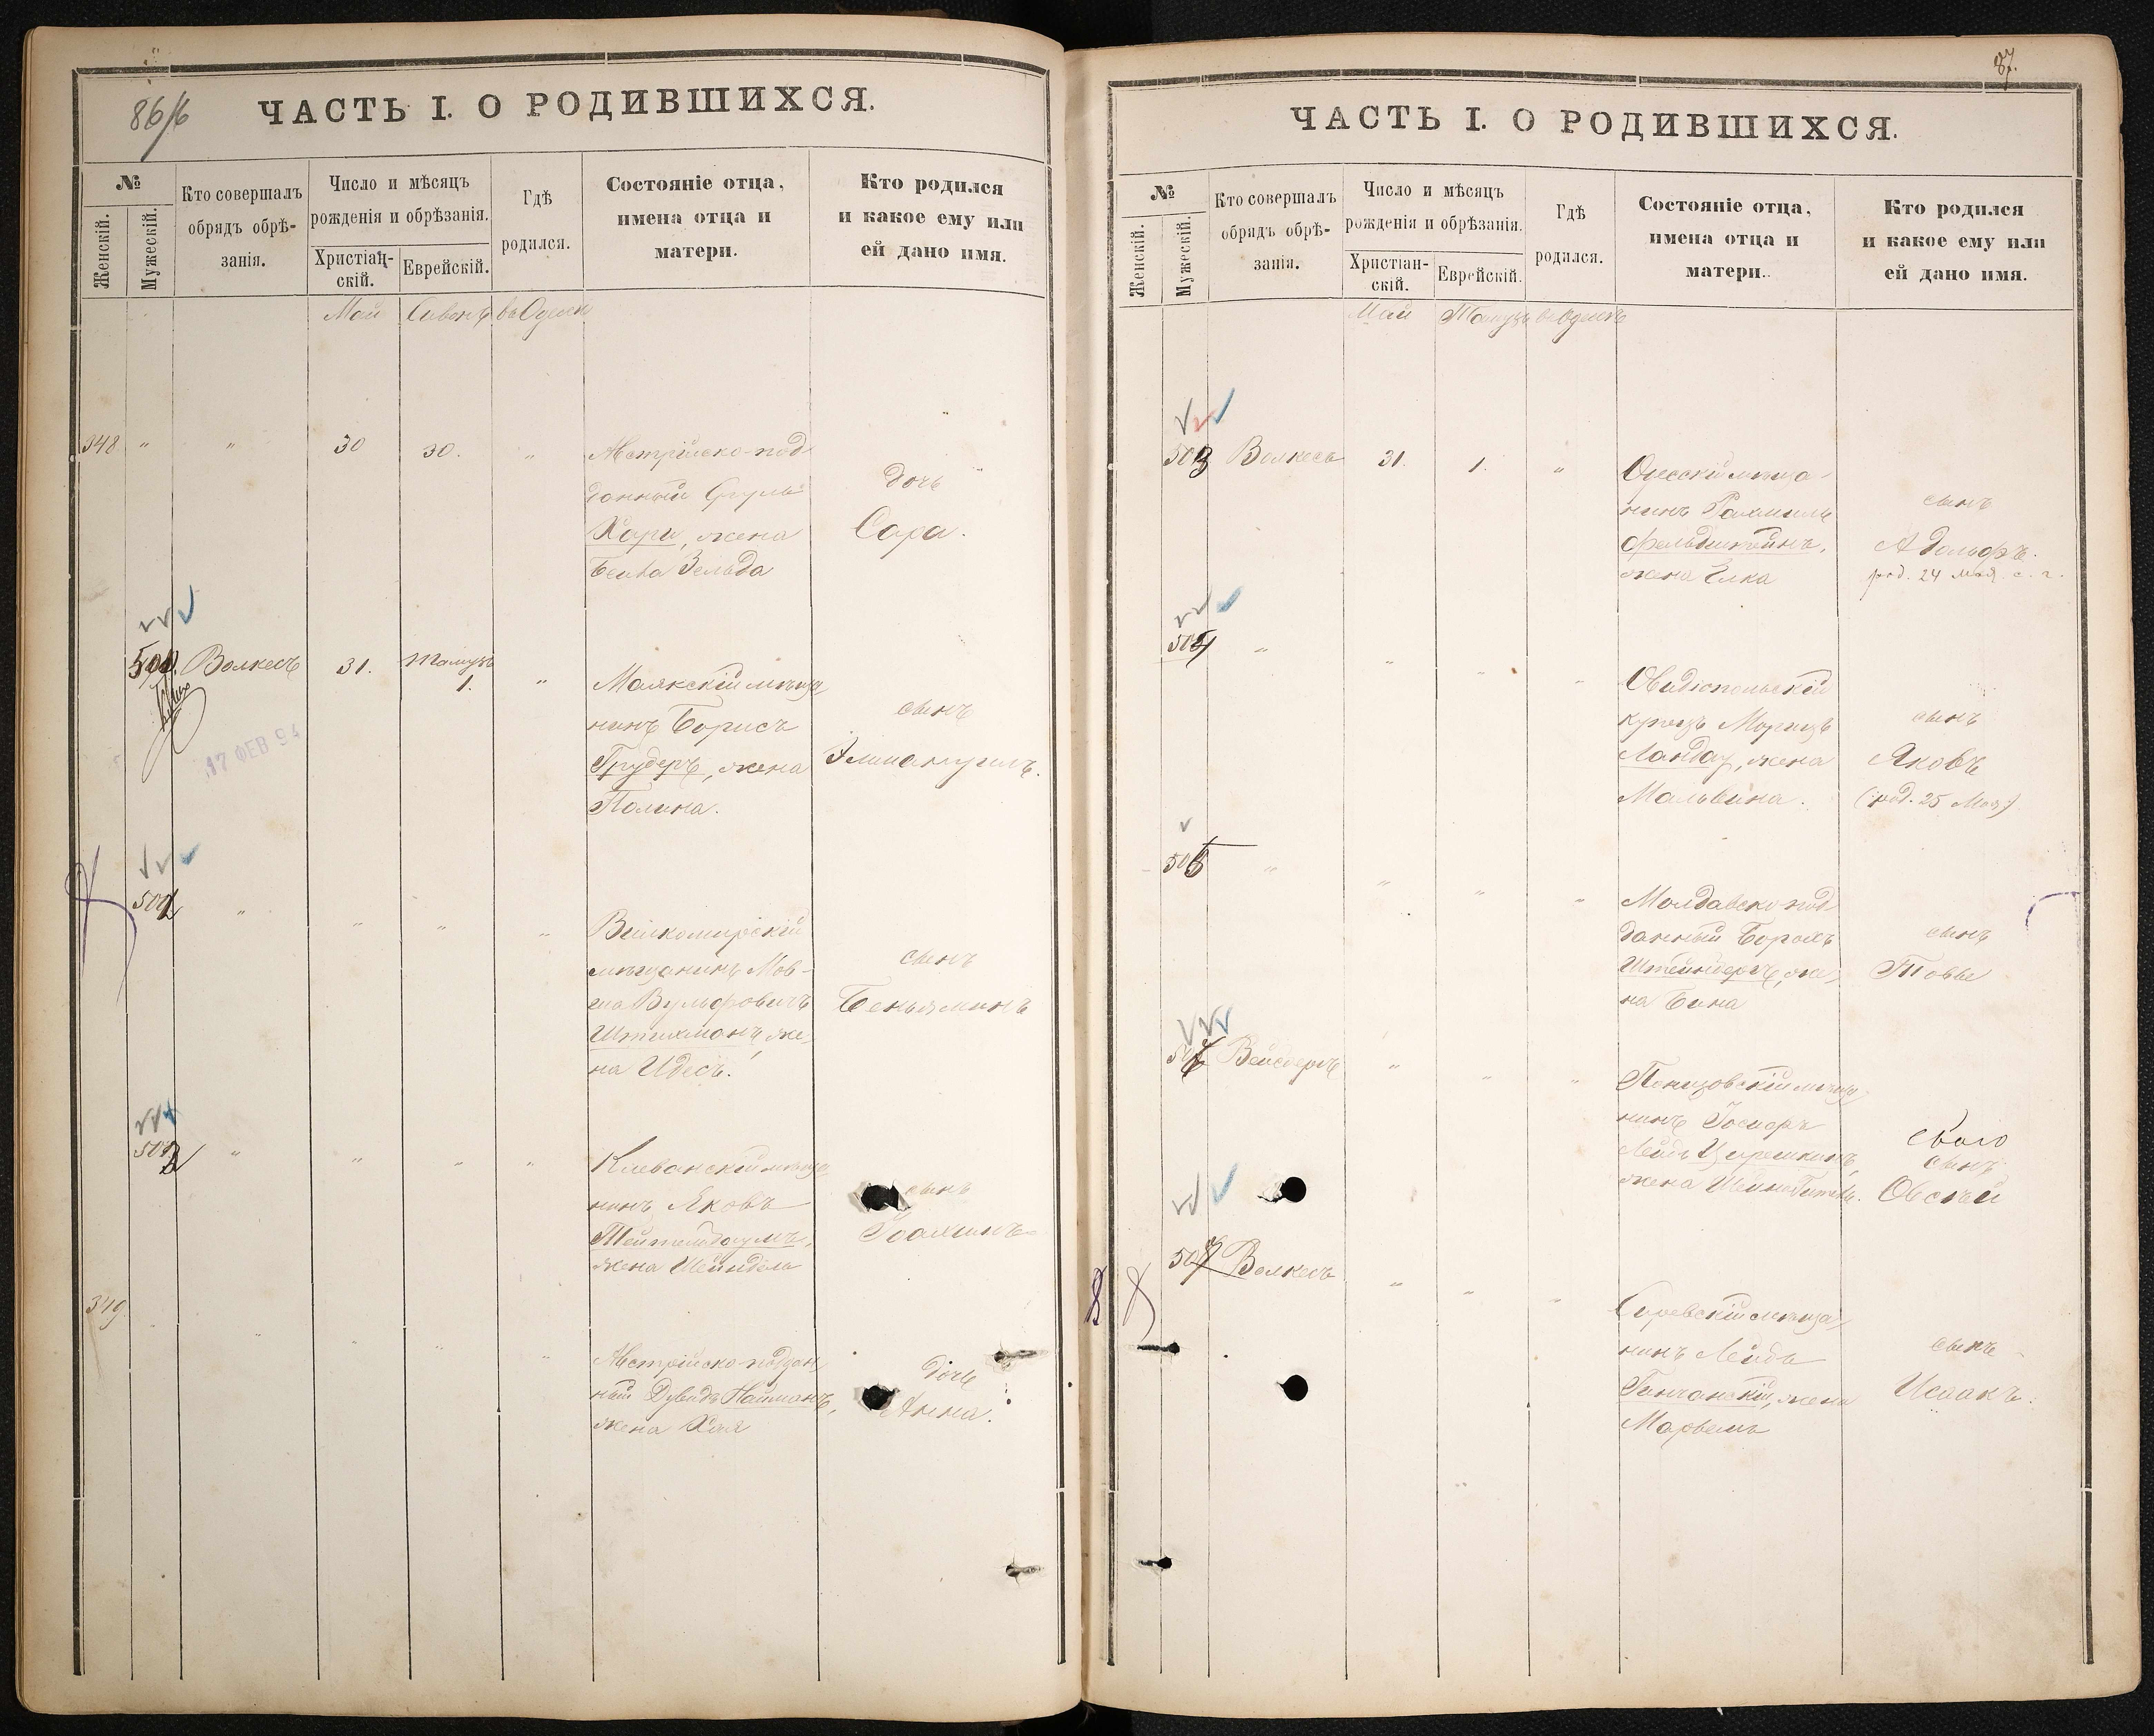 86/б
ЧАСТЬ I. О РОДИВШИХСЯ.
№
Женскій.
Мужескій.
Кто совершалъ
обрядъ обрѣ-
занія.
Число и мѣсяцъ
рожденія и обрѣзанія.
Христіан-
скій.
Еврейскій.
Гдѣ
родился.
Состояніе отца,
имена отца и
матери.
Кто родился
и какое ему или
ей дано имя.
Май Сивонъ въ Одессѣ
348 " " 30 30. "
Австрійско-под
данный
Хари, жена
Бейла Зельда
дочь
Сара.
500. Волкесъ 31. Тамузъ
1. "
17 ФЕВ 94
Маякскій мѣща
нинъ Борисъ
Грудеръ, жена
Полина.
сынъ
501 " " " "
Вилкомирскій
мѣщанинъ Мов-
ша Вульфовичъ
Штихманъ, же-
на Идесъ.
сынъ
Беньяминъ
502 " " " "
Клеванскій мѣща
нинъ Яковъ
Тейтельбаумъ,
жена Шейндля
сынъ
Іоахимъ
349. " " " " "
Австрійско-поддан
ный Дувидъ Найманъ,
жена Хая
дочь
Анна.
87.
ЧАСТЬ I. О РОДИВШИХСЯ.
№
Женскій.
Мужескій.
Кто совершалъ
обрядъ обрѣ-
занія.
Число и мѣсяцъ
рожденія и обрѣзанія.
Христіан-
скій.
Еврейскій.
Гдѣ
родился.
Состояніе отца,
имена отца и
матери.
Кто родился
и какое ему или
ей дано имя.
Май Тамузъ въ Одессѣ
503 Волкесъ 31. 1. "
Одесскій мѣща-
нинъ Рахмиль
Фельдштейнъ,
жена Елка
сынъ
Адольфъ.
род. 24 мая с. г.
504 " " " "
Овидіопольскій
купецъ Морицъ
Ландау, жена
Мальвина.
сынъ
Яковъ
(род. 25 Мая)
505 " " " "
Молдавско-под
данный Борохъ
Штейнбергъ, же-
на Бина
сынъ
Товье
506 Вейсбергъ " " "
нинъ Іосифъ
Лейбъ
жена
сынъ
Овсѣй
507 Волкесъ " " "
нинъ Лейбъ
жена
Марьемъ
сынъ
Исаакъ.